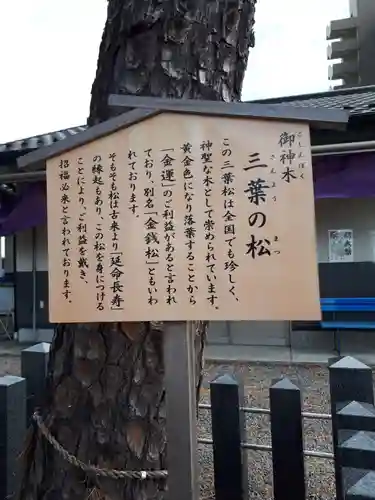 御神木
ごしんぼく
三葉の松
さんよう
まつ
この三葉松は全国でも珍しく、
神聖な木として崇められています。
黄金色になり落葉することから
「金運」のご利益があると言われ
ており、別名「金銭松」ともいわ
れております。
そもそも松は古来より「延命長寿」
の縁起もあり、この松を身につける
ことにより、ご利益を戴き、
招福必来と言われております。